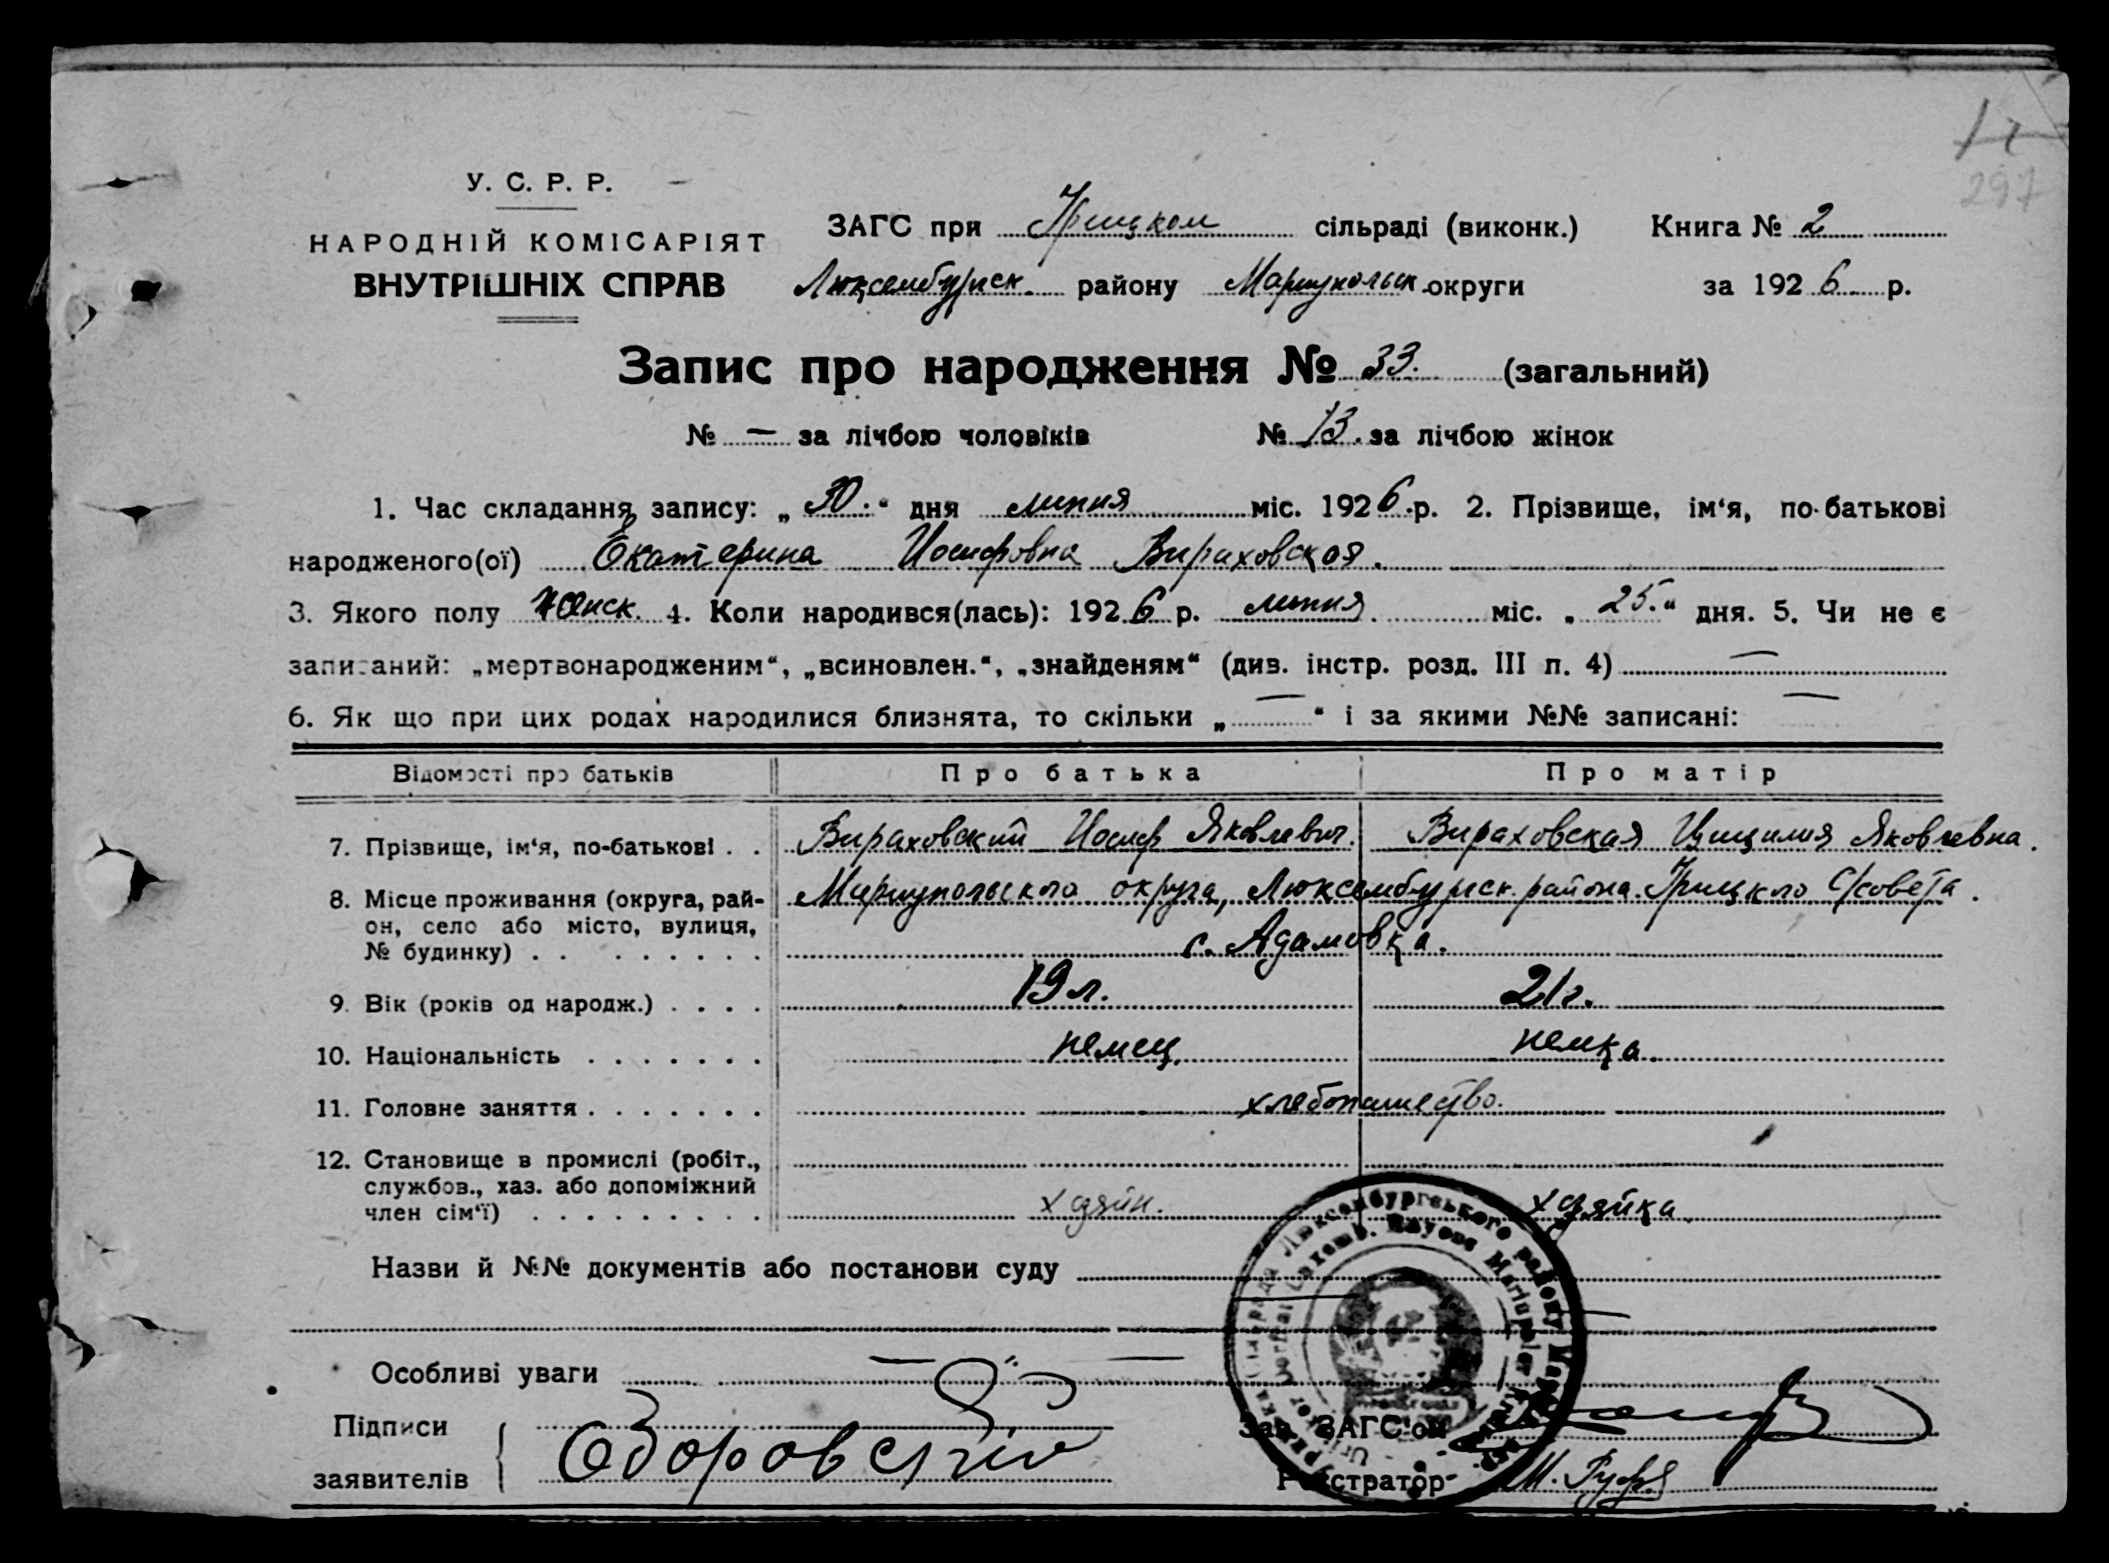 297
У. С. Р. Р.
НАРОДНІЙ КОМІСАРІЯТ
ВНУТРІШНІХ СПРАВ
ЗАГС при сільраді (виконк.) Книга № 2
Люксембургск. району Мариупольск. округи за 1926 р.
Запис про народження № 33. (загальний)
№ — за лічбою чоловіків № 13. за лічбою жінок
1. Час складання запису: „ 30. “ дня липня міс. 1926 р. 2. Прізвище, ім‘я, по-батькові
народженого(ої) Екатерина Иосифовна Вираховская.
3. Якого полу женск. 4. Коли народився(лась): 1926 р. липня міс. „ 25. “ дня. 5. Чи не є
записаний: „мертвонародженим“, „всиновлен.“, „знайденям“ (див. інстр. розд. III п. 4) —
6. Як що при цих родах народилися близнята, то скільки „ — “ і за якими №№ записані: —
Відомості про батьків Про батька Про матір
7. Прізвище, ім‘я, по-батькові . . Вираховский Иосиф Яковлевич. Вираховская Цицилия Яковлевна.
8. Місце проживання (округа, рай- Мариупольского округа, Люксембургск. района.
он, село або місто, вулиця,
№ будинку) . . . . . . . . . с. Адамовка.
9. Вік (років од народж.) . . . . 19 л. 21 г.
10. Національність . . . . . . . немец. немка.
11. Головне заняття . . . . . . . хлебопашество.
12. Становище в промислі (робіт.,
службов., хаз. або допоміжний
член сім‘ї) . . . . . . . . . хозяин. хозяйка
Назви й №№ документів або постанови суду
Особливі уваги — „ —
Підписи
заявителів
Зав. ЗАГС‘ом
Реєстратор